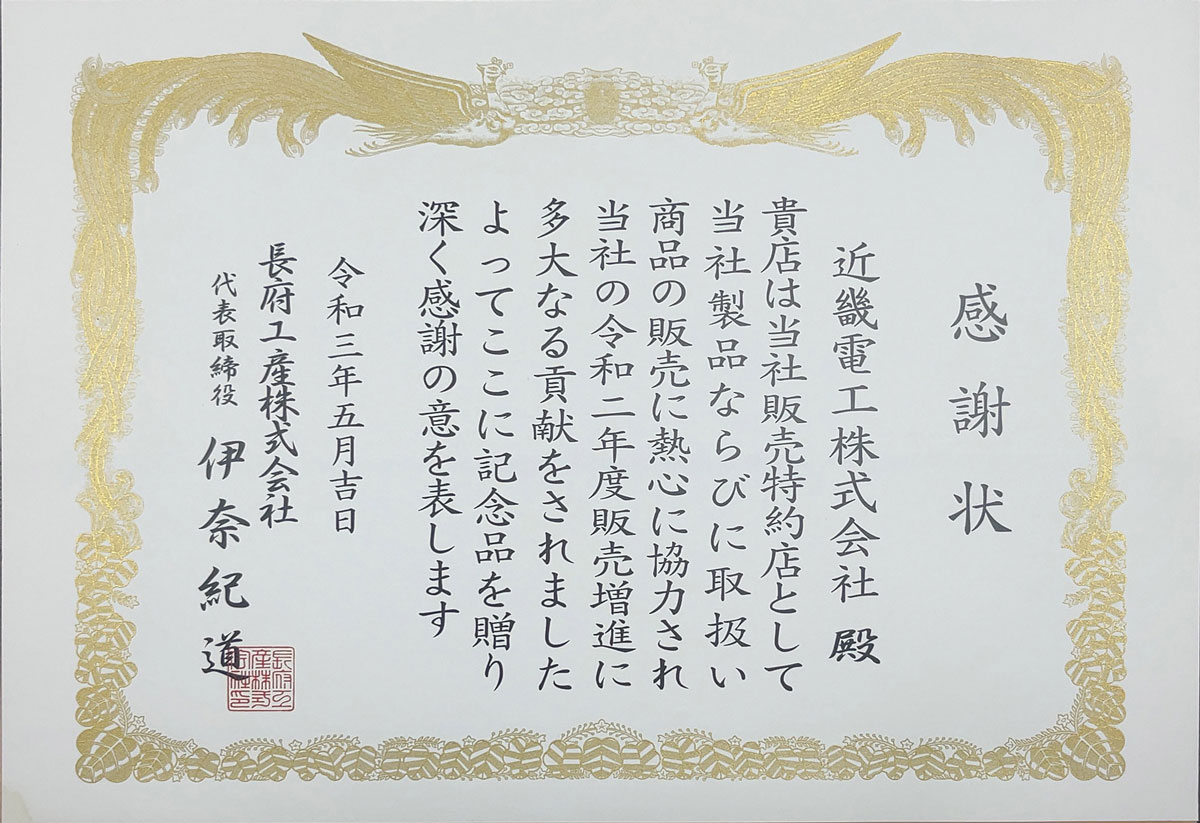 感謝状
近畿電工株式会社 殿
貴店は当社販売特約店として
当社製品ならびに取扱い
商品の販売に熱心に協力され
当社の令和二年度販売増進に
多大なる貢献をされました
よってここに記念品を贈り
深く感謝の意を表します
令和三年五月吉日
長府工産株式会社
代表取締役 伊奈紀道
長府工
産株式
会社印